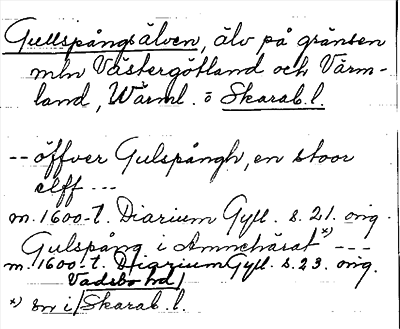 Gullspångsälven, älv på gränsen
mln Västergötland och Värm-
land, Wärml. o Skarab. l.
-- öffver Gulspångh, en stoor
elff ---
m. 1600-t. Diarium Gyll. s. 21. orig.
Gulspång i Amnehärat *) ---
m. 1600-t. Diarium Gyll. s. 23. orig.
Vadsbo hd/
*) sn i / Skarab. l.